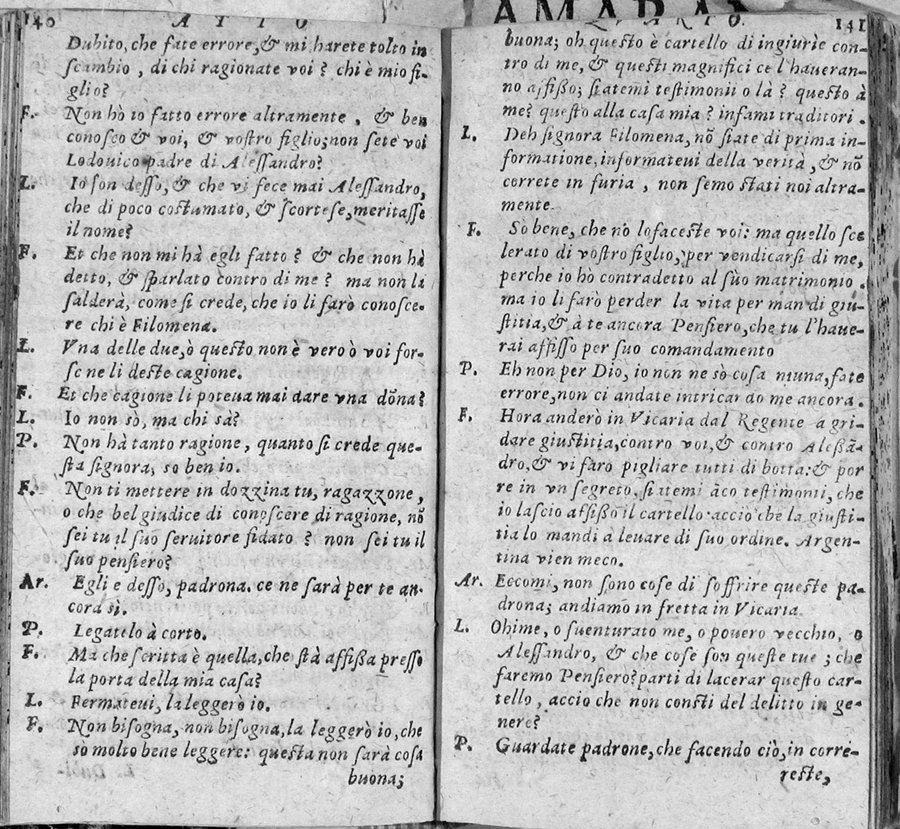 AMARAT
140 ATTO
Dubito, che fate errore, & mi harete tolto in
scambio, di chi ragionate voi? chi è mio fi-
glio?
F. Non hò io fatto errore altramente, & ben
conosco & voi, & vostro figlio; non sete voi
Lodouico padre di Alessandro?
L. Io son desso, & che vi fece mai Alessandro,
che di poco costumato, & scortese, meritasse
il nome?
F. Et che non mi hà egli fatto? & che non hà
detto, & sparlato contro di me? ma non la
salderà, come si crede, che io li farò conosce-
re chi è Filomena.
L. Vna delle due, ò questo non è vero ò voi for-
se ne li deste cagione.
F. Et che cagione li poteua mai dare vna dõna?
L. Io non sò, ma chi sà?
P. Non hà tanto ragione, quanto si crede que-
sta signora, so ben io.
F. Non ti mettere in dozzina tu, ragazzone,
o che bel giudice di conoscere di ragione, nõ
sei tu il suo seruitore fidato? non sei tu il
suo pensiero?
Ar. Egli e desso, padrona. ce ne sarà per te an-
cora sì.
P. Legatelo à corto.
F. Ma che scritta è quella, che stà affissa presso
la porta della mia casa?
L. Fermateui, la leggerò io.
F. Non bisogna, non bisogna, la leggerò io, che
so molto bene leggere: questa non sarà cosa
buona;
QVARTO. 141
buona; oh questo è cartello di ingiurie con-
tro di me, & questi magnifici ce l'haueran-
no affisso; siatemi testimonii o là? questo à
me? questo alla casa mia? infami traditori.
L. Deh signora Filomena, nõ siate di prima in-
formatione, informateui della verità, & nõ
correte in furia, non semo stati noi altra-
mente.
F. So bene, che nò lo faceste voi: ma quello sce
lerato di vostro figlio, per vendicarsi di me,
perche io hò contradetto al suo matrimonio.
ma io li farò perder la vita per man di giu-
stitia, & à te ancora Pensiero, che tu l'haue-
rai affisso per suo comandamento
P. Eh non per Dio, io non ne sò cosa niuna, fate
errore, non ci andate intricando me ancora.
F. Hora anderò in Vicaria dal Regente a gri-
dare giustitia, contro voi, & contro Alessã-
dro, & vi farò pigliare tutti di botta: & por
re in vn segreto, siatemi ãco testimonii, che
io lascio affisso il cartello: acciò che la giusti-
tia lo mandi a leuare di suo ordine. Argen-
tina vien meco.
Ar. Eccomi, non sono cose di soffrire queste pa-
drona; andiamo in fretta in Vicaria.
L. Ohime, o suenturato me, o pouero vecchio, o
Alessandro, & che cose son queste tue; che
faremo Pensiero? parti di lacerar questo car-
tello, accio che non consti del delitto in ge-
nere?
P. Guardate padrone, che facendo ciò, in corre-
reste,